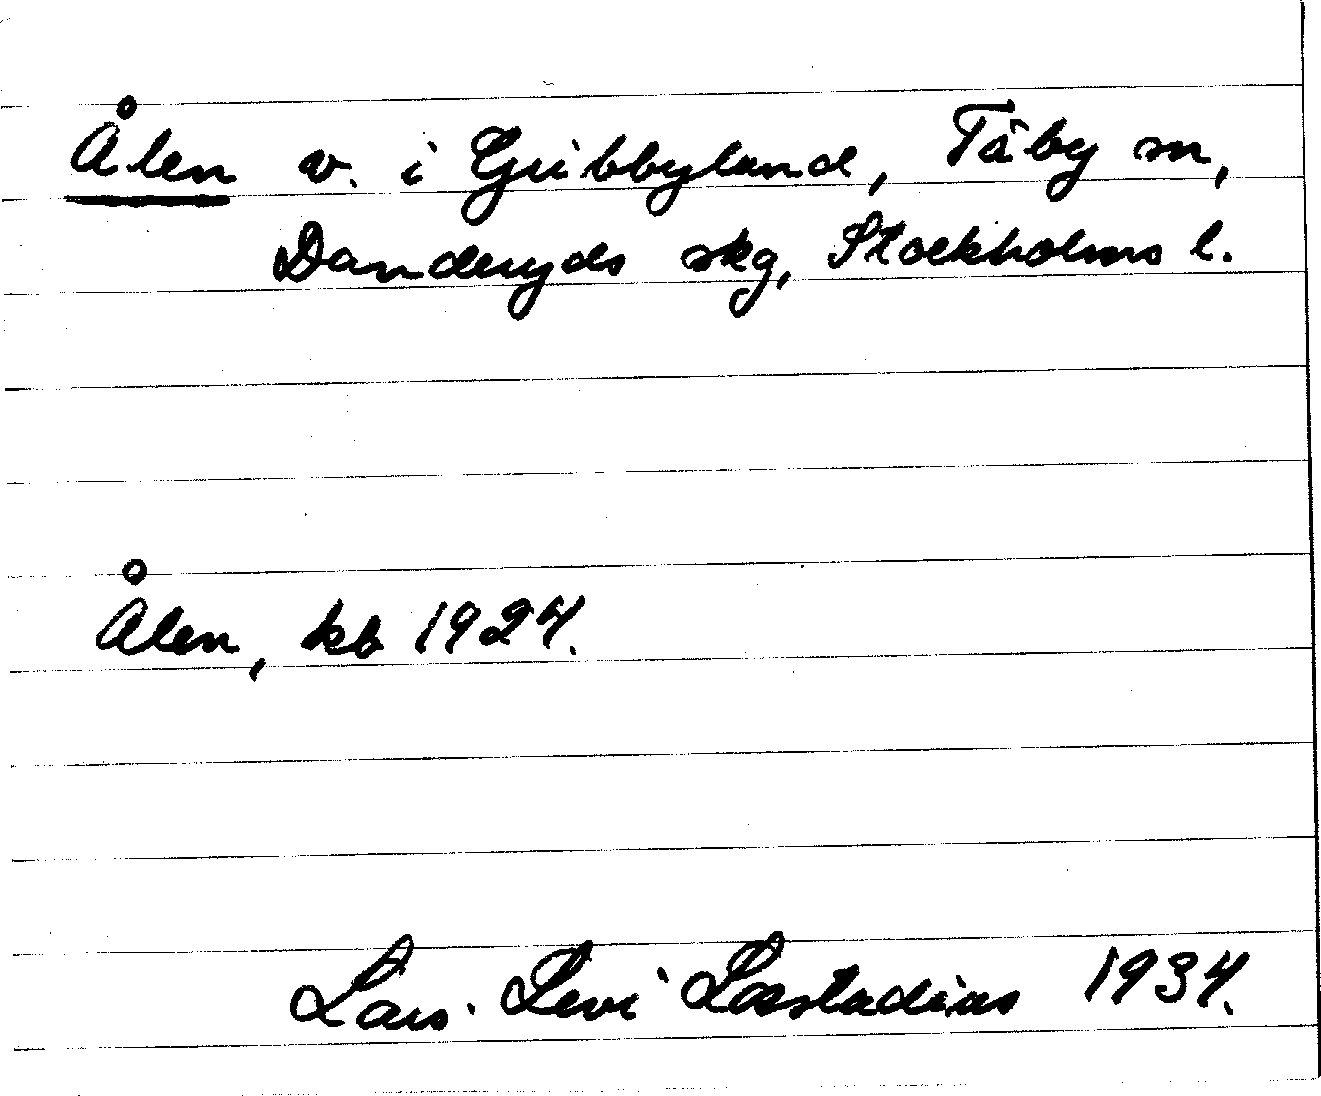 Ålen v. i Gribbyland, Täby sn,
Danderyds skg, Stockholms l.
Ålen, kb 1924.
Lars Levi Læstadius 1934.